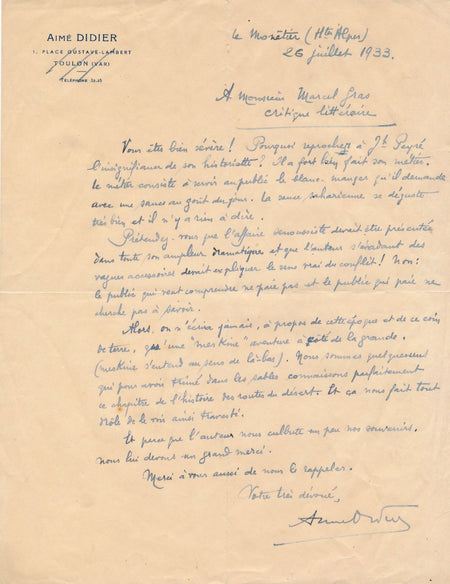 AIMÉ DIDIER
1, PLACE GUSTAVE-LAMBERT
TOULON (VAR)
TÉLÉPHONE
le Monêtier (Htes Alpes)
26 juillet 1933.
A Monsieur Marcel Gras
critique littéraire
Vous êtes bien sévère ! Pourquoi reprocher à Jh Peyré
l'insignifiance de son historiette ? Il a fort bien fait son métier.
le métier consiste à servir au public le blanc-manger qu'il demande
avec une sauce au goût du jour. la sauce saharienne se déguste
très bien et il n'y a rien à dire.
Prétendez-vous que l'affaire senoussiste devait être présentée
dans toute son ampleur dramatique et que l'auteur s'évadant des
vagues accessoires devait expliquer le sens vrai du conflit ! Non :
le public qui veut comprendre ne paie pas et le public qui paie ne
cherche pas à savoir.
Alors, on n'écrira jamais, à propos de cette époque et de ce coin
de terre, qu'une "meskine" aventure à côté de la grande.
(meskine s'entend au sens de là-bas). Nous sommes quelques uns
qui pour avoir trimé dans les sables connaissons parfaitement
ce chapitre de l'histoire des routes du désert. Et ça nous fait tout
drôle de le voir ainsi travesti.
Et parce que l'auteur nous culbute un peu nos souvenirs.
nous lui devons un grand merci.
Merci à vous aussi de nous le rappeler.
Votre très dévoué,